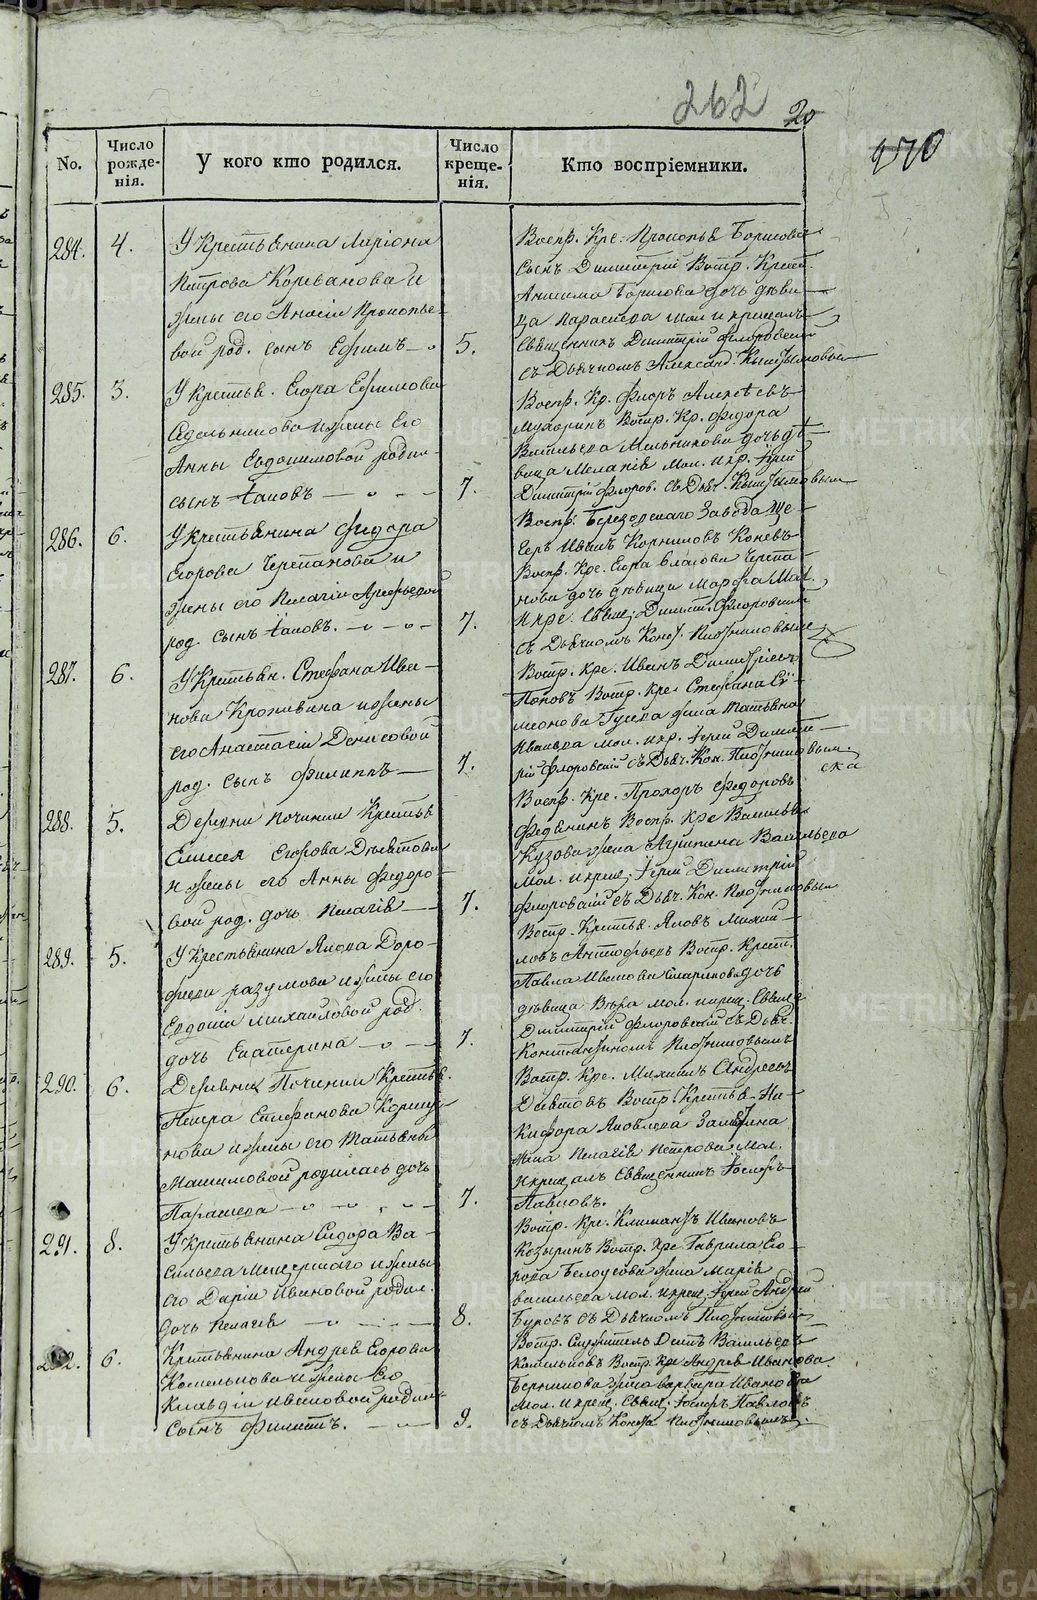 262 20
470
No. Число рожденія. У кого кто родился. Число крещенія. Кто воспріемники.
284. 4. У Крестьянина Ларіона
Петрова Корюванова и
жены его Анісіи Прокопье-
вой род. сынъ Ефимъ 5.
Воспр. Кре. Прокопья Борисова
сынъ Димитрій Воспр. Крест.
Анисима Борисова дочь дѣви-
ца Параскева мол. и крещалъ
Священникъ Димитрій Флоровскій
съ Дьячкомъ Александ. Кыштымовым
285. 3. У крестья. Егора Ефимова
и жены Его
Анны Евдокимовой родил-
сынъ Іаковъ 7.
Воспр. Кр. Флоръ Алексѣевъ
Мухоринъ Воспр. Кр. Федора
Васильева Мельникова дочь дѣ-
вица Меланія Мол. и кр. Іерей
Димитрій Флоров. съ Дьяч. Кыштымовым
286. 6. У крестьянина Федора
Егорова Черепанова и
жены его Пелагіи Арефьевой
род. сынъ Іаковъ. 7.
Воспр. Березовскаго Завода
Иванъ Корниловъ Коневъ
Воспр. Кре. Егора Власова Черепа-
нова дочь дѣвица Марфа Мол.
и кре. Свящ. Димит. Флоровскій
съ Дьячкомъ Конст. Плотниковымъ
287. 6. У Крестьян. Стефана Ива-
нова Кропивина и жены
его Анастасіи Денисовой
род. сынъ Филиппъ 7.
Воспр. Кре. Иванъ Димитріевъ
Поповъ Воспр. Кре. Стефана Си-
меонова Гусева жена Татьяна
Иванова мол. и кр. Іерей Димит-
рій Флоровскій съ Дьяч. Кон. Плотниковым.
288. 5. Деревни Починки Крестья
Елисея Егорова Девятова
и жены его Анны Федоро-
вой род. дочь Пелагія 7.
Воспр. Кре. Прохоръ Федоровъ
Федянинъ Воспр. Кре Василья
Кузова жена Агрипина Васильева
мол. и крещ. Іерей Димитрій
Флоровскій съ Дьяч. Кон. Плотниковым
289. 5. У Крестьянина Якова Доро-
феева Разумова и жены его
Евдокіи Михайловой род.
дочь Екатерина 7.
Воспр. Крестья. Яковъ Михай-
ловъ Воспр. Крест.
Павла Иванова дочь
дѣвица Вѣра мол. и крещ. Свящ
Димитрій Флоровскій съ Дьяч.
Константиномъ Плотниковымъ
290. 6. Деревни Починки Крестья.
Петра Епифанова Коршу-
нова и жены его Татьяны
Максимовой родилась дочь
Параскева 7.
Воспр. Кре. Михаилъ Андреевъ
Девятовъ Воспр. Крестья. Ни-
кифора Яковлева
жена Пелагія Петрова Мол.
и крещалъ Священникъ Іосифъ
Павловъ.
291. 8. У Крестьянина Сидора Ва-
сильева и жены
его Даріи Ивановой родил.
дочь Пелагія 8.
Воспр. Кре. Климантъ Ивановъ
Козыринъ Воспр. Кре Гаврила Его-
рова Белоусова жена Марія
Васильева мол. и крещ. Іерей Андрей
Буровъ съ Дьячкомъ Плотниковым
292. 6. Крестьянина Андрея Егорова
Комельцова и жены Его
Клавдіи Ивановой родил.
Сынъ Филиппъ. 9.
Воспр. Служитель Васильевъ
Воспр. Кре Андрея Иванова
жена Варвара Иванова
мол. и крещ. Свящ. Іосифъ Павловъ
съ Дьячкомъ Конста Плотниковымъ.